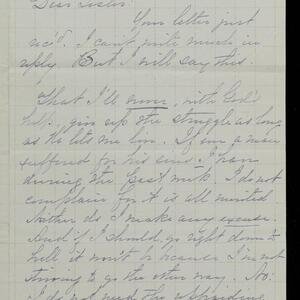 Dear Sister:
Your letter just
rec'd. I can't write much in
reply. But I will say this:
That I'll never, with God's
help, give up the struggle as long
as He lets me live. If ever a man
suffered for his sins I have
during the past week. I do not
complain for it is all merited
Neither do I make any excuse.
And if I should go right down to
hell it won't be because I'm not
trying to go the other way. No:
I do not need the